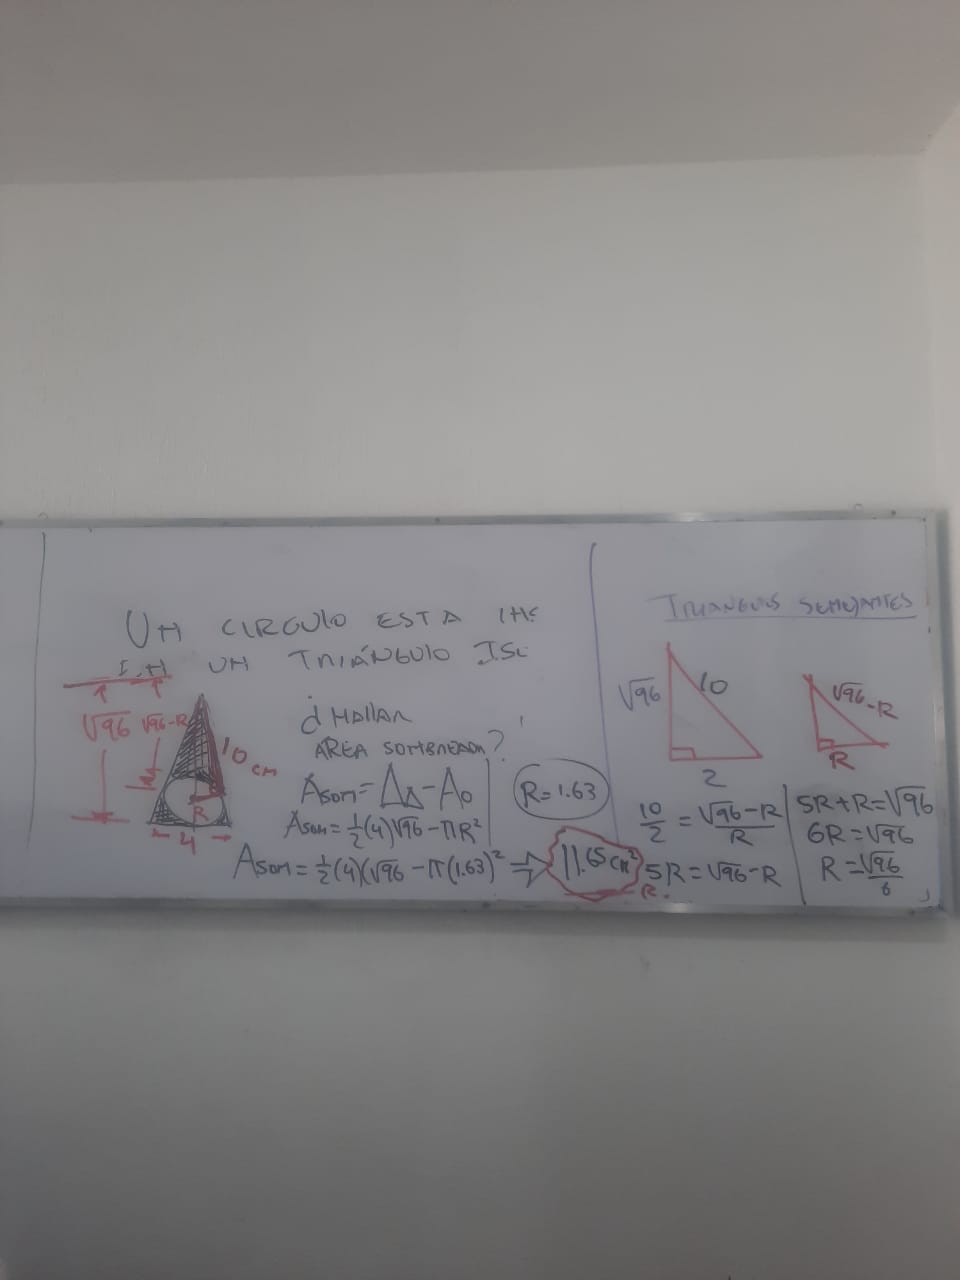 UN CIRCULO ESTA INS
UN TRIÁNGULO ISC
√96 √96-R
10 cm
R
4
¿ HALLAR
AREA SOMBREADA?
Asom = A△ - A○
Asom = ½(4)√96 - πR²
Asom = ½(4)(√96 - π(1.63)² ⇒ 11.65 cm²
R.
R = 1.63
TRIANGULOS SEMEJANTES
√96 10
2
√96-R
R
10/2 = √96-R/R
5R = √96-R
5R+R=√96
6R=√96
R=√96/6